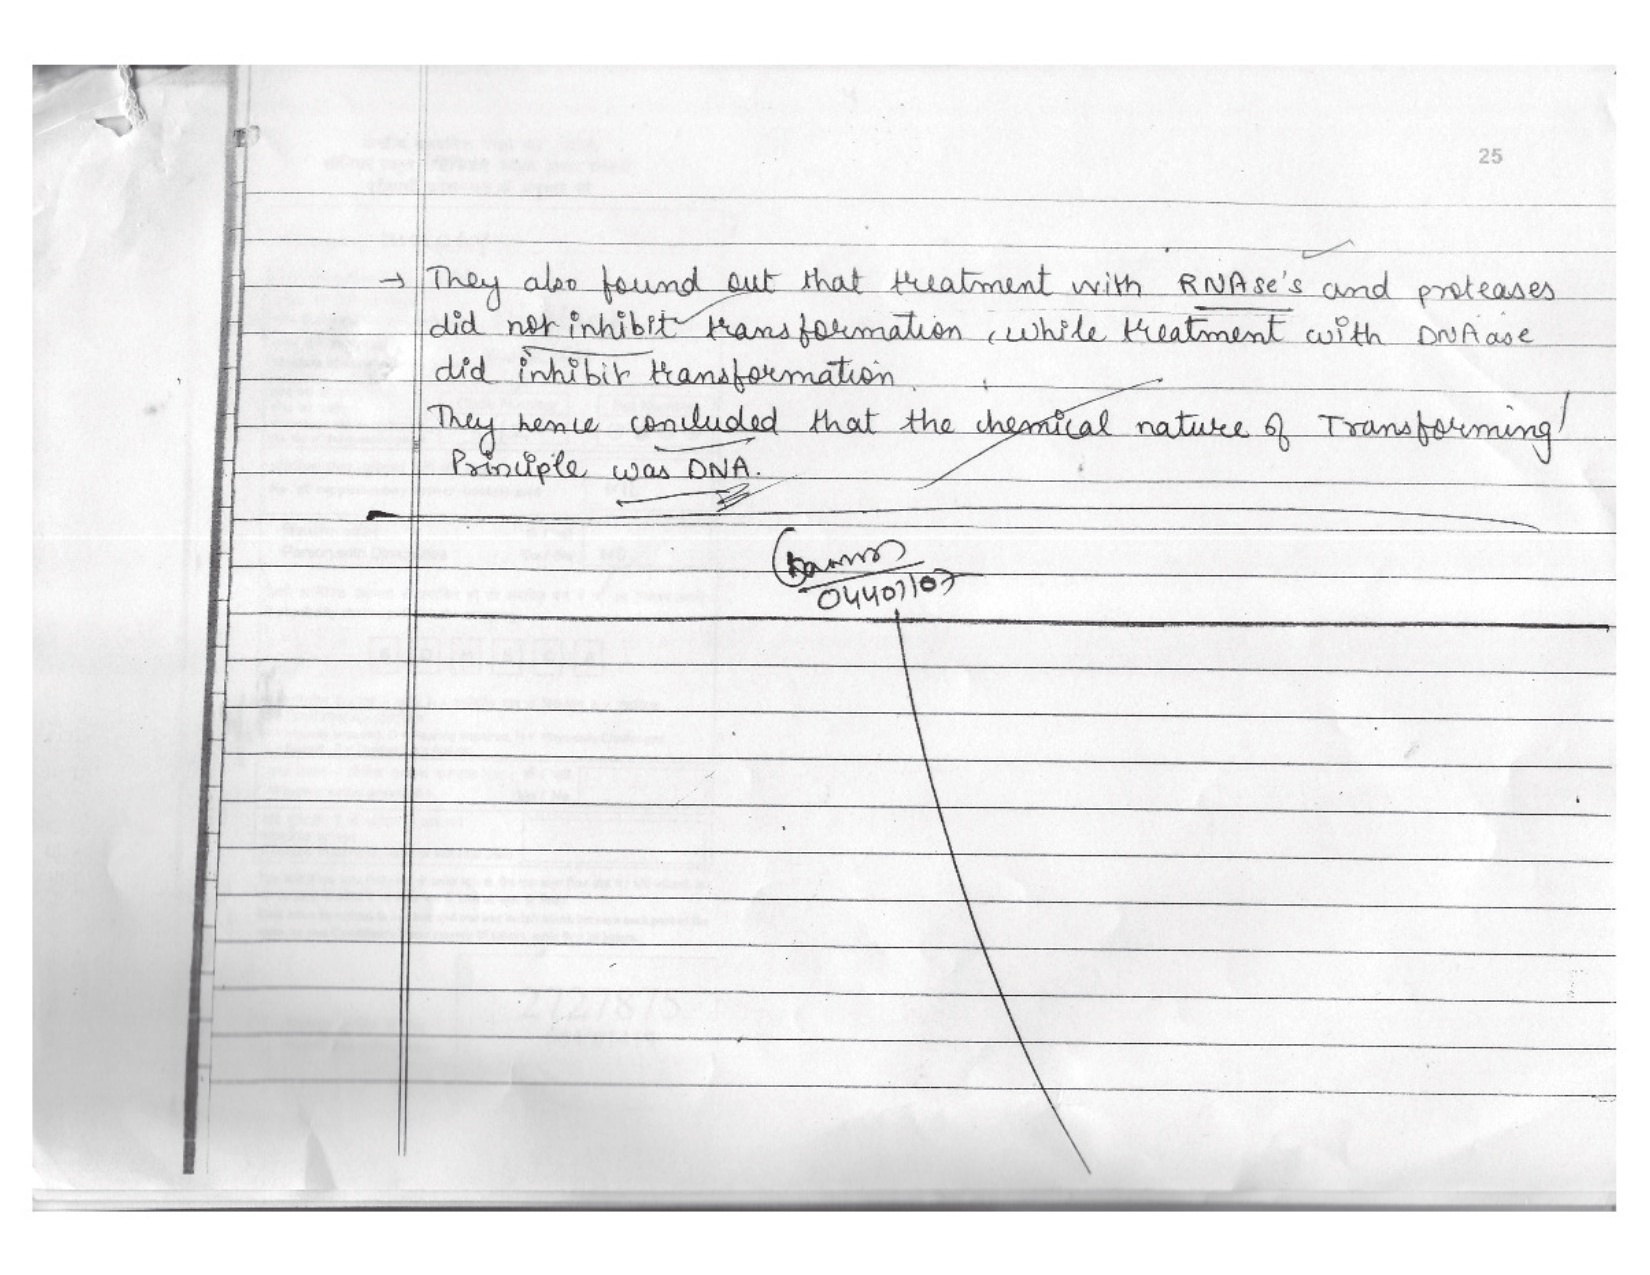 25
→ They also found out that treatment with RNAse's and proteases
did not inhibit transformation, while treatment with DNAase
did inhibit transformation.
They hence concluded that the chemical nature of Transforming
Principle was DNA.
04407107